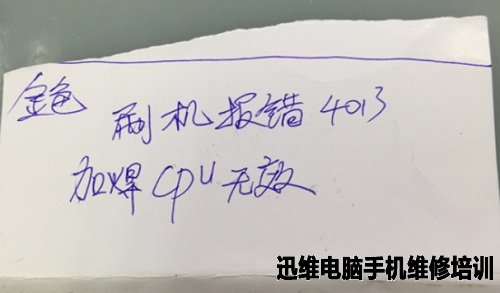 金色
刷机报错4013
加焊CPU无效
迅维电脑手机维修培训